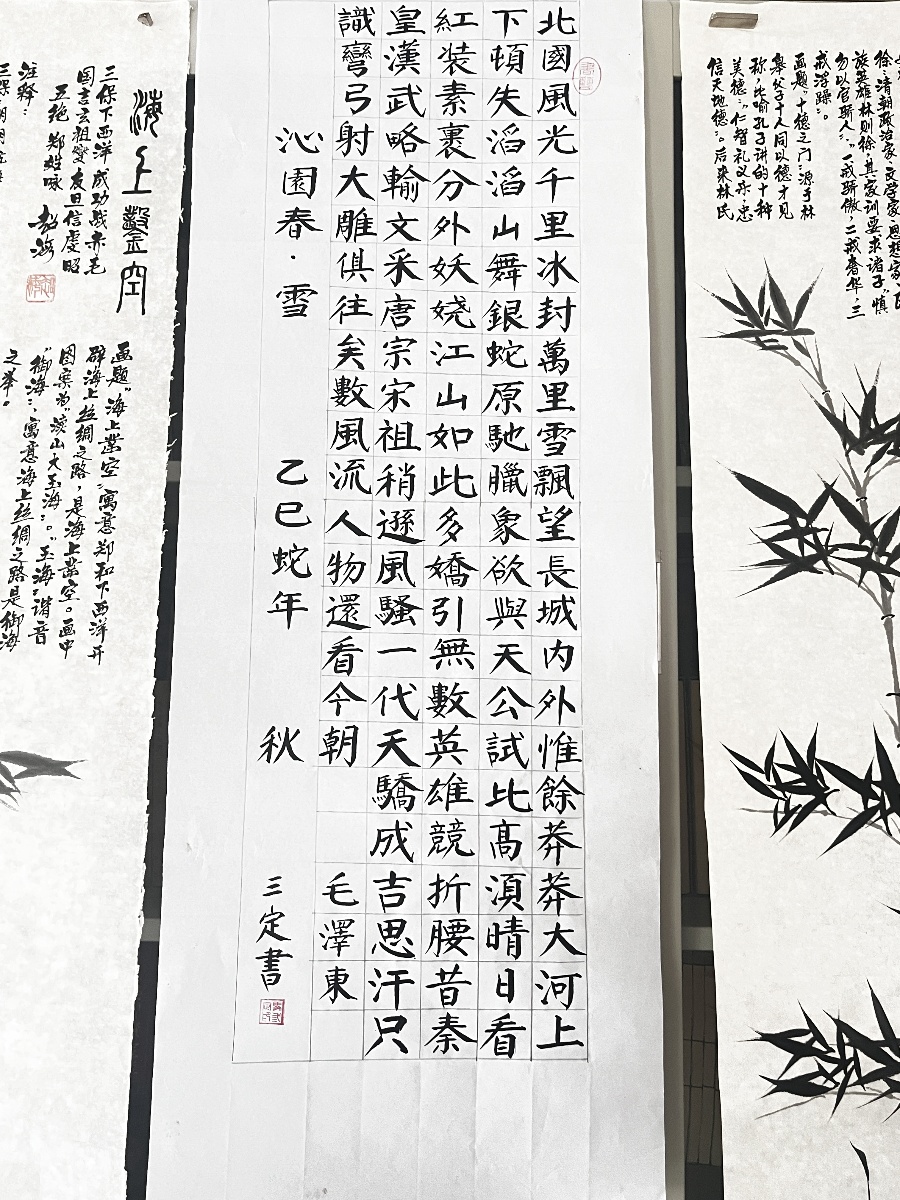 北國風光千里冰封萬里雪飄望長城内外惟餘莽莽大河上
下頓失滔滔山舞銀蛇原馳臘象欲與天公試比高湏晴日看
紅装素裹分外妖娆江山如此多嬌引無數英雄競折腰昔秦
皇漢武略輸文采唐宗宋祖稍遜風騷一代天驕成吉思汗只
識彎弓射大雕俱往矣數風流人物還看今朝 毛澤東
沁園春·雪 乙巳蛇年 秋 三定書
徐:清朝政治家、文学家、思想家、民
族英雄林则徐,其家训要求诸子"慎
勿以官骄人":一戒骄傲,二戒奢华,三
戒浮躁。
画题"十德之门"源于林
皋父子十人同以德才见
称,比喻孔子讲的十种
美德:"仁智礼义乐,忠
信天地德"。后来林氏
海上鑿空
三保下西洋成功战赤毛
郑姓咏
注释:
画题"海上凿空"寓意郑和下西洋开
辟海上丝绸之路,是海上凿空。画中
图案为"渎山大玉海"。"玉海"谐音
"御海",寓意海上丝绸之路是御海
之举。